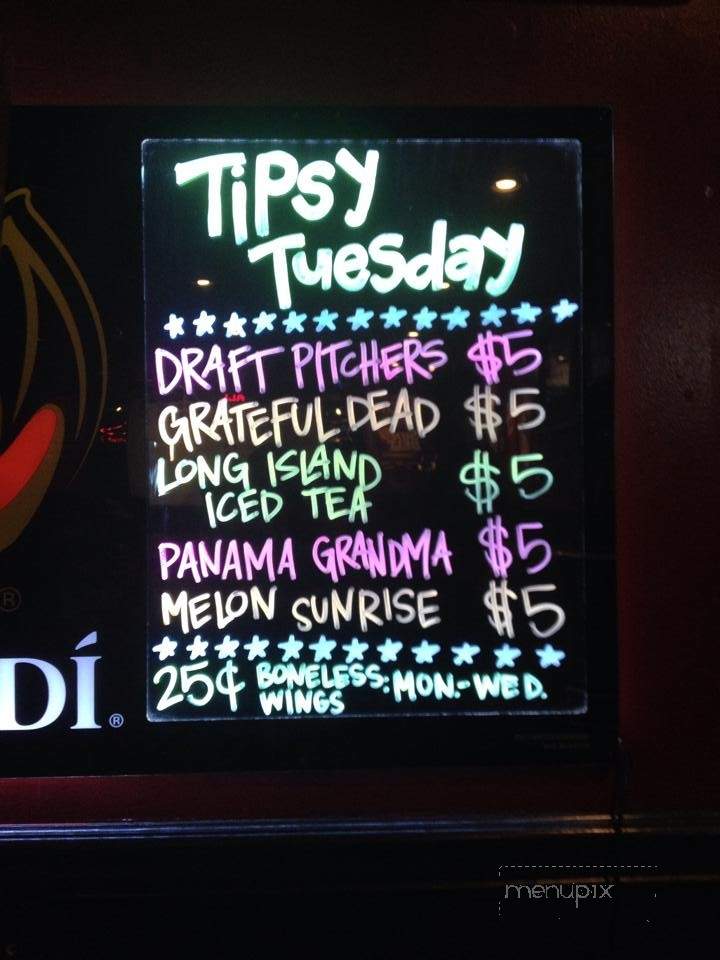 TiPsy
Tuesday
DRAFT PITCHERS $5
GRATEFUL DEAD $5
LONG ISLAND
ICED TEA $5
PANAMA GRANDMA $5
MELON SUNRISE $5
25¢ BONELESS WINGS: MON.-WED.
DÍ®
®
menupix